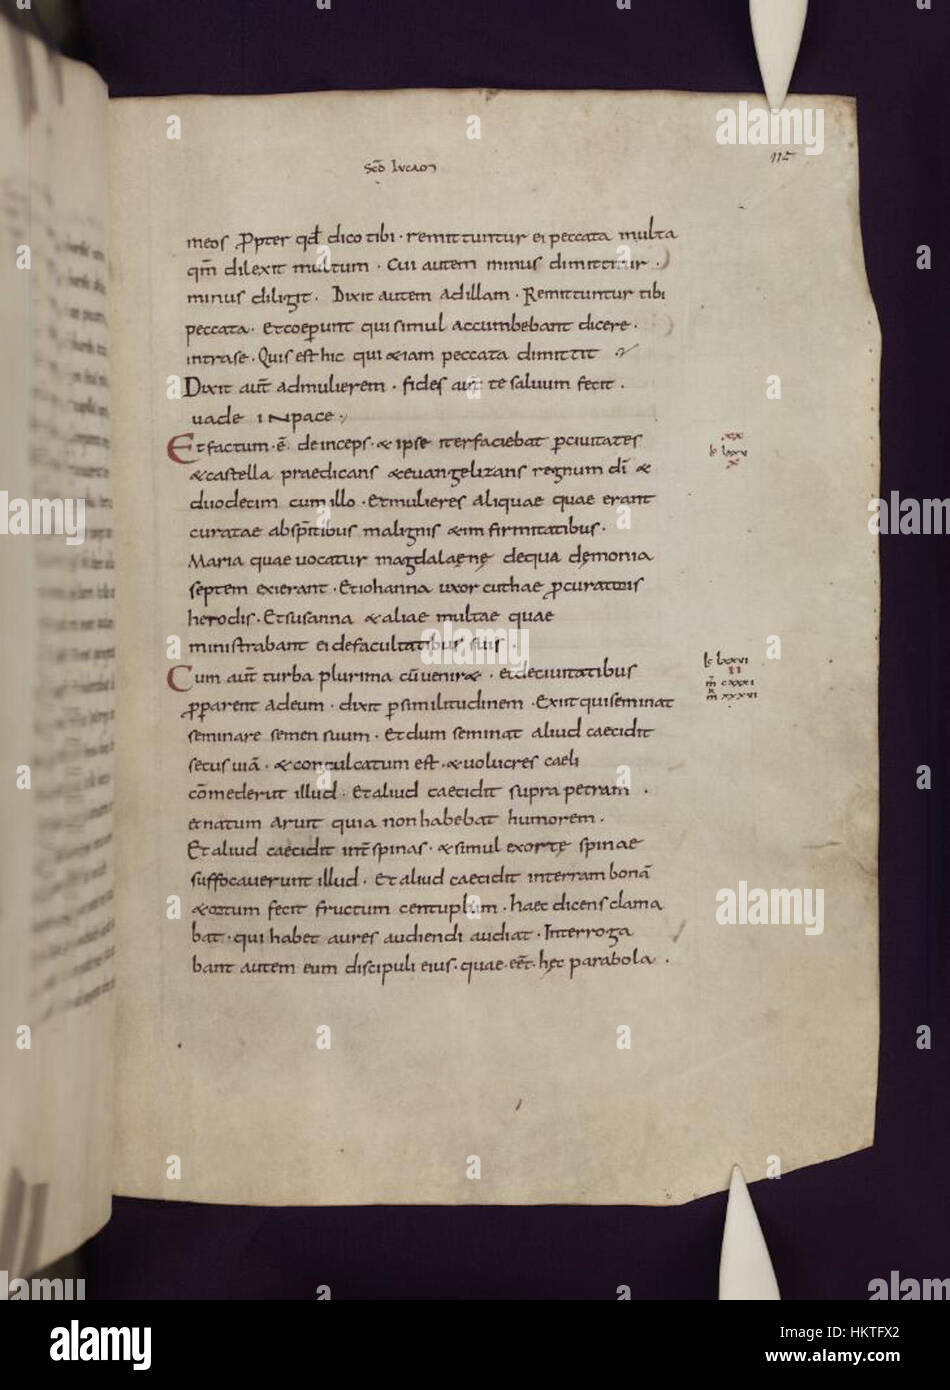 115
Scđ lvcam
meos Ꝓpter qđ dico tibi · remittuntur ei peccata multa
qm̄ dilexit multum · Cui autem minus dimittitur ·
minus diligit · Dixit autem adillam · Remittuntur tibi
peccata · Etcoeperunt quisimul accumbebant dicere ·
intrase · Quis esthic qui &iam peccata dimittit
Dixit aut̄ admulierem · fides aut̄ te saluum fecit ·
uade inpace ·
Etfactum · ē · deinceps · & ipse iterfaciebat ꝑciuitates
&castella praedicans &euangelizans regnum dī &
duodecim cumillo · Etmulieres aliquae quae erant
curatae abspīritibus malignis &infirmitatibus ·
Maria quae uocatur magdalaenę dequa dęmonia
septem exierant · Etiohanna uxor cuthae ꝓcuratoris
herodis · Etsusanna &aliae multae quae
ministrabant eidefacultatibus suis ·
Cum aut̄ turba plurima cūuenir& · &deciuitatibus
ꝓꝑarent adeum · dixit ꝑsimilitudinem · Exiitquiseminat
seminare semen suum · Etdum seminat aliud caecidit
secus uiā · &conculcatum est · &uolucres caeli
cōmederūt illud · Etaliud caecidit supra petram ·
etnatum aruit quia nonhabebat humorem ·
Etaliud caecidit int̄ spinas · &simul exortę spinae
suffocauerunt illud · Etaliud caecidit interram bonā
&ortum fecit fructum centuplum · haec dicens clama
bat · qui habet aures audiendi audiat · Interroga
bant autem eum discipuli eius · quae · eēt · hęc parabola ·
xx
lc lxxv
x
lc lxxvi
ii
m̄ cxxxi
m̄ xxxvi
alamy
Image ID: HKTFX2
www.alamy.com